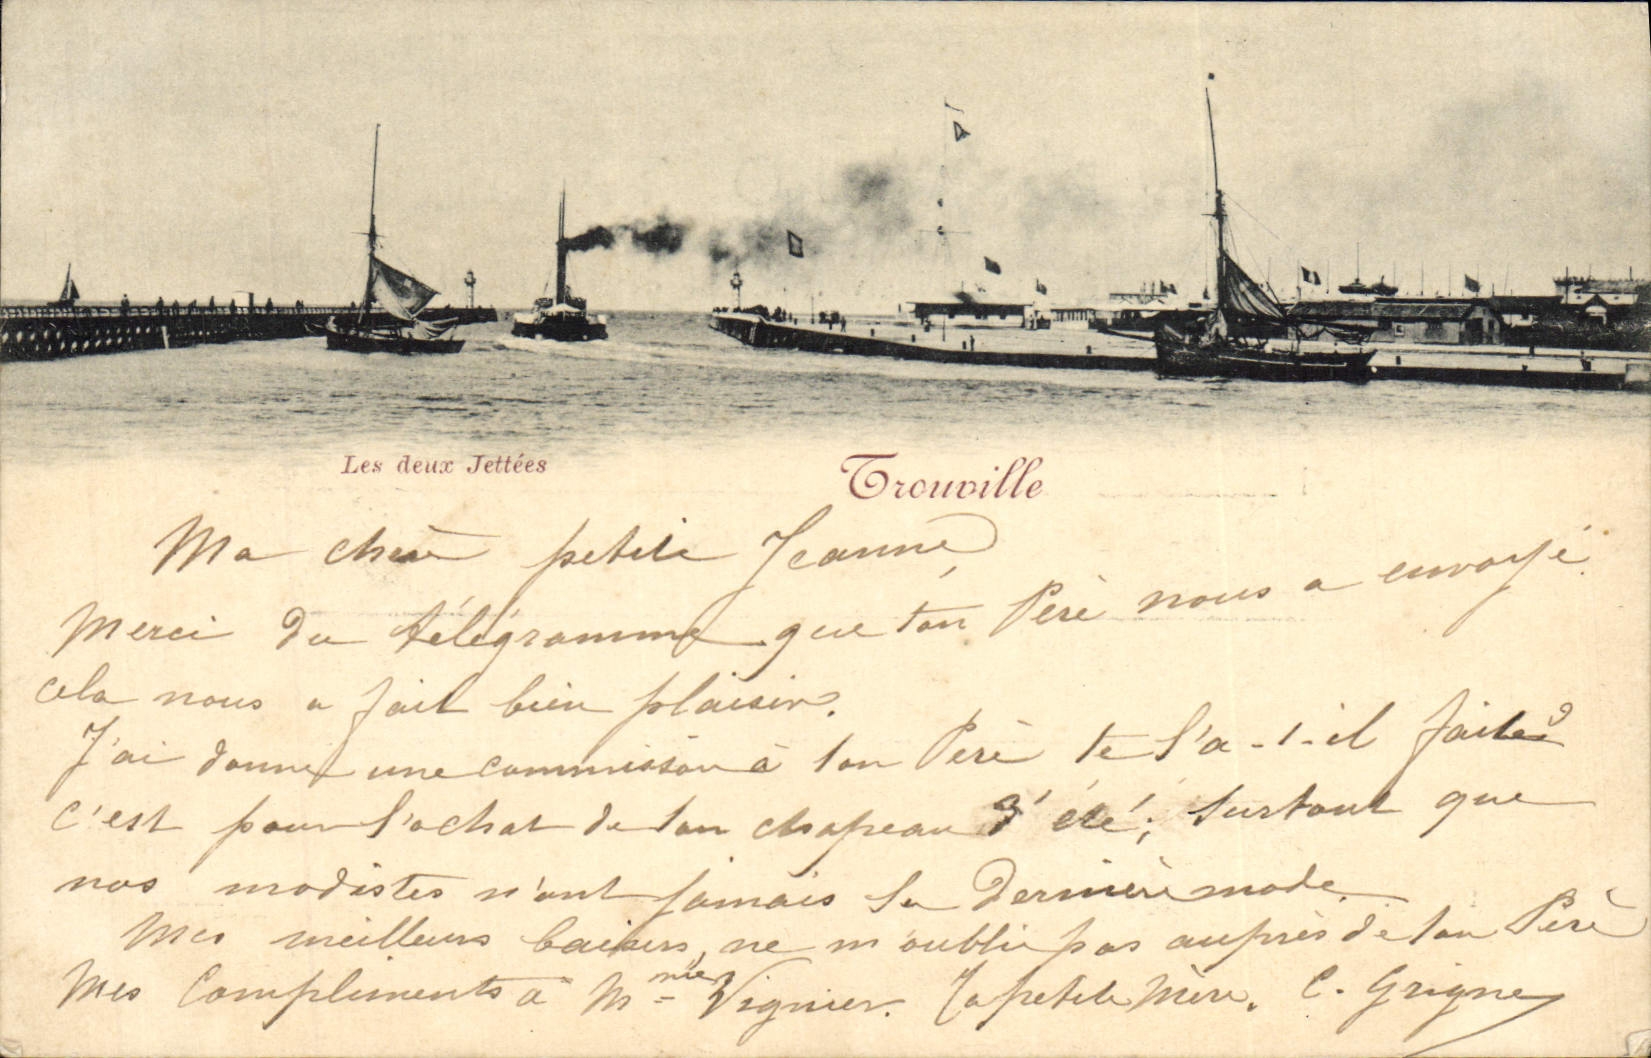 Les deux Jettées
Trouville
Ma chère petite Jeanne,
Merci du télégramme que ton Père nous a envoyé
cela nous a fait bien plaisir.
J'ai donné une commission à ton Père te l'a-t-il faite?
c'est pour l'achat de ton chapeau d'été; surtout que
nos modistes n'ont jamais la dernière mode.
Mes meilleurs baisers, ne m'oublie pas auprès de ton Père
Mes Compliments à Mme Vignier. Ta petite Mère. C. Grigne